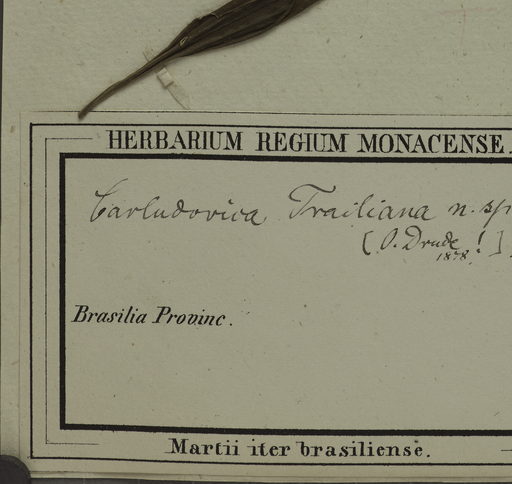 HERBARIUM REGIUM MONACENSE.
Carludovica Trailiana n. sp
[O. Drude ! ]
1878
Brasilia Provinc.
Martii iter brasiliense.